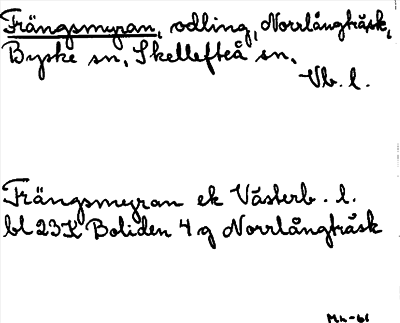 Frängsmyran, odling, Norrlångträsk,
Byske sn, Skellefteå sn.
Vb. l.
Frängsmyran ek Västerb. l.
bl 23K Boliden 4 g Norrlångträsk